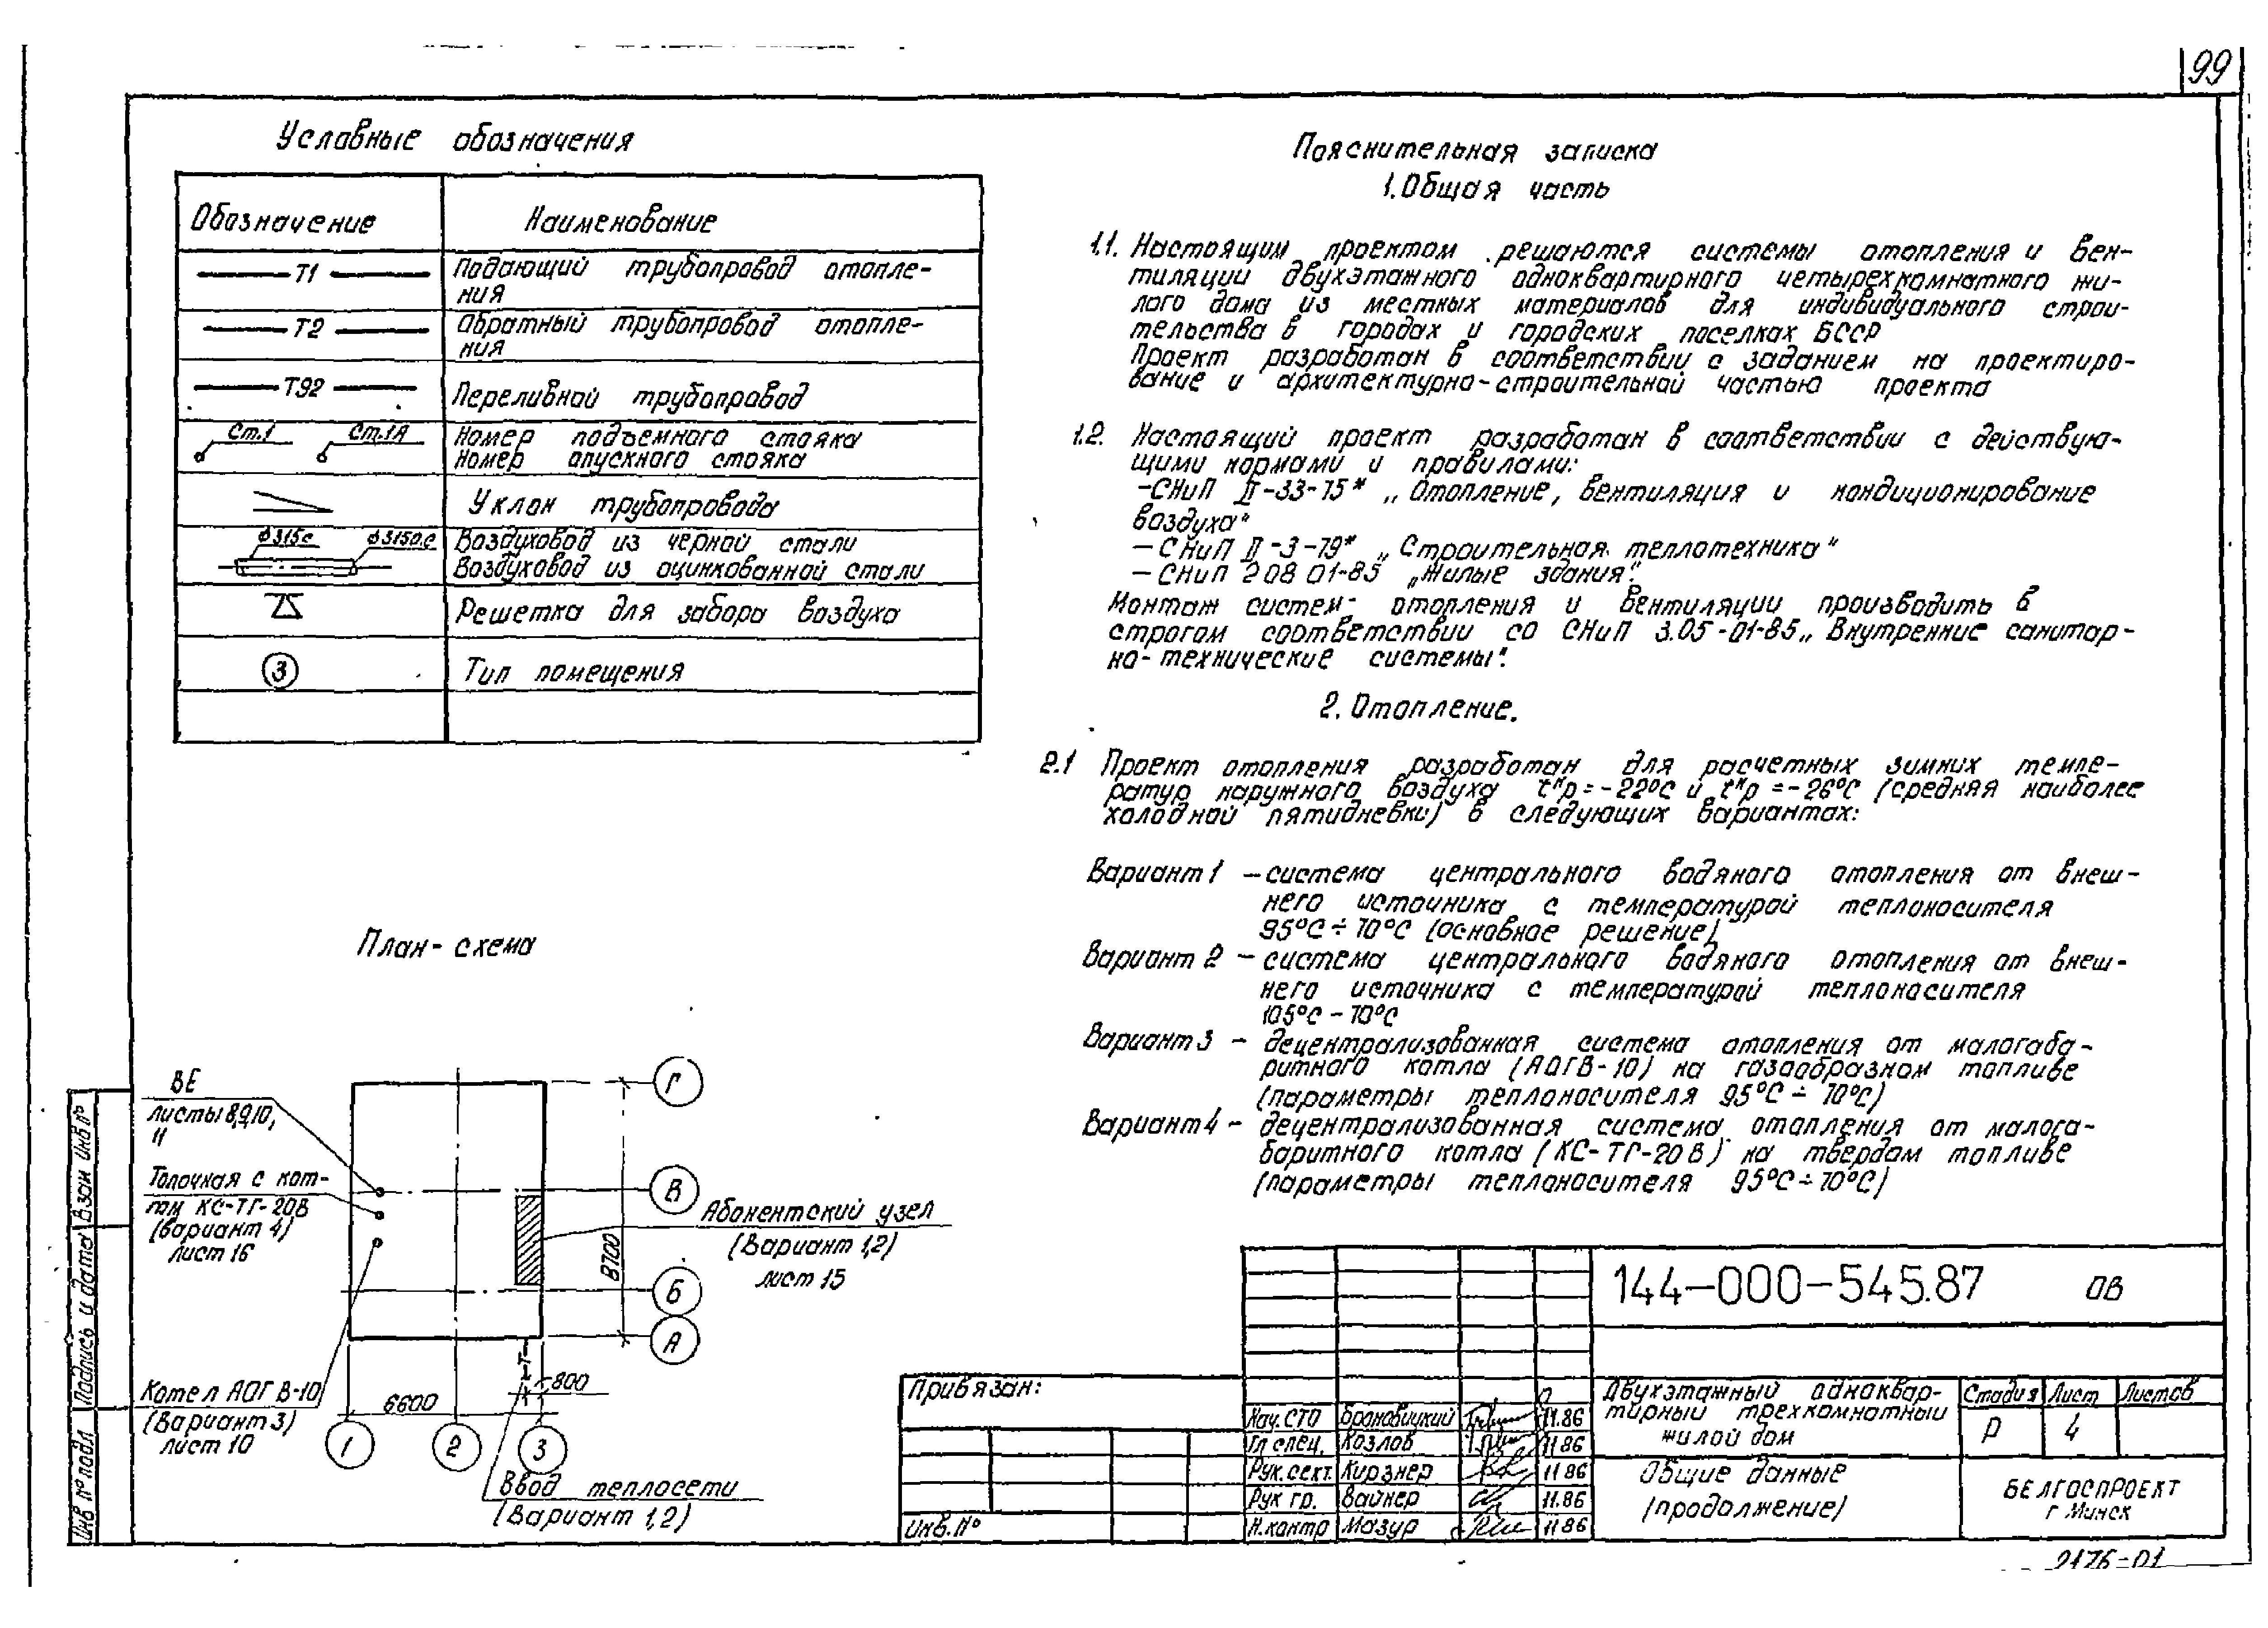 99
Условные обозначения
Обозначение Наименование
Т1 Подающий трубопровод отопле-
ния
Т2 Обратный трубопровод отопле-
ния
Т92 Переливной трубопровод
Ст.1 Ст.1А Номер подъемного стояка
Номер опускного стояка
Уклон трубопровода
ф315с ф315о.с Воздуховод из черной стали
Воздуховод из оцинкованной стали
Решетка для забора воздуха
3 Тип помещения
План-схема
ВЕ
листы 8,9,10,
11
Топочная с кот-
лом КС-ТГ-20В
(вариант 4)
лист 16
Котел АОГВ-10
(Вариант 3)
лист 10
Г
В
Б
А
8700
Абонентский узел
(Вариант 1,2)
лист 15
Т
800
6600
1 2 3
Ввод теплосети
(Вариант 1,2)
Пояснительная записка
1. Общая часть
1.1. Настоящим проектом решаются системы отопления и вен-
тиляции двухэтажного одноквартирного четырехкомнатного жи-
лого дома из местных материалов для индивидуального строи-
тельства в городах и городских поселках БССР
Проект разработан в соответствии с заданием на проектиро-
вание и архитектурно-строительной частью проекта
1.2. Настоящий проект разработан в соответствии с действую-
щими нормами и правилами:
-СНиП II-33-75* „Отопление, вентиляция и кондиционирование
воздуха"
- СНиП II-3-79* „Строительная теплотехника"
- СНиП 2 08 01-85 „Жилые здания".
Монтаж систем отопления и вентиляции производить в
строгом соответствии со СНиП 3.05-01-85 „Внутренние санитар-
но-технические системы".
2. Отопление.
2.1 Проект отопления разработан для расчетных зимних темпе-
ратур наружного воздуха tнр=-22°С и tнр=-26°С (средняя наиболее
холодной пятидневки) в следующих вариантах:
Вариант 1 - система центрального водяного отопления от внеш-
него источника с температурой теплоносителя
95°С÷70°С (основное решение)
Вариант 2 - система центрального водяного отопления от внеш-
него источника с температурой теплоносителя
105°С-70°С
Вариант 3 - децентрализованная система отопления от малогаба-
ритного котла (АОГВ-10) на газообразном топливе
(параметры теплоносителя 95°С÷70°С)
Вариант 4 - децентрализованная система отопления от малога-
баритного котла (КС-ТГ-20В) на твердом топливе
(параметры теплоносителя 95°С÷70°С)
144-000-545.87 ОВ
Привязан:
Инв.№
Нач.СТО Броновицкий 11.86
Гл спец. Козлов 11 86
Рук.сект. Кирзнер 11 86
Рук гр. Вайнер 11.86
Н.контр Мазур 11 86
Двухэтажный одноквар-
тирный трехкомнатный
жилой дом
Стадия Лист Листов
Р 4
Общие данные
(продолжение)
БЕЛГОСПРОЕКТ
г Минск
Инв №подл Подпись и дата Взам инв №
2176-01